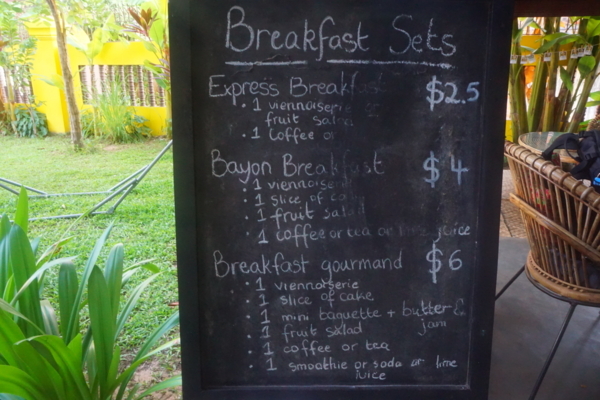 Breakfast Sets
Express Breakfast $2.5
• 1 viennoiserie or
fruit salad
• 1 Coffee or
Bayon Breakfast $4
• 1 viennoiserie
• 1 slice of
• 1 fruit salad
• 1 coffee or tea or juice
Breakfast gourmand $6
• 1 viennoiserie
• 1 slice of cake
• 1 mini baguette + butter &
jam
• 1 fruit salad
• 1 coffee or tea
• 1 smoothie or soda or lime
juice